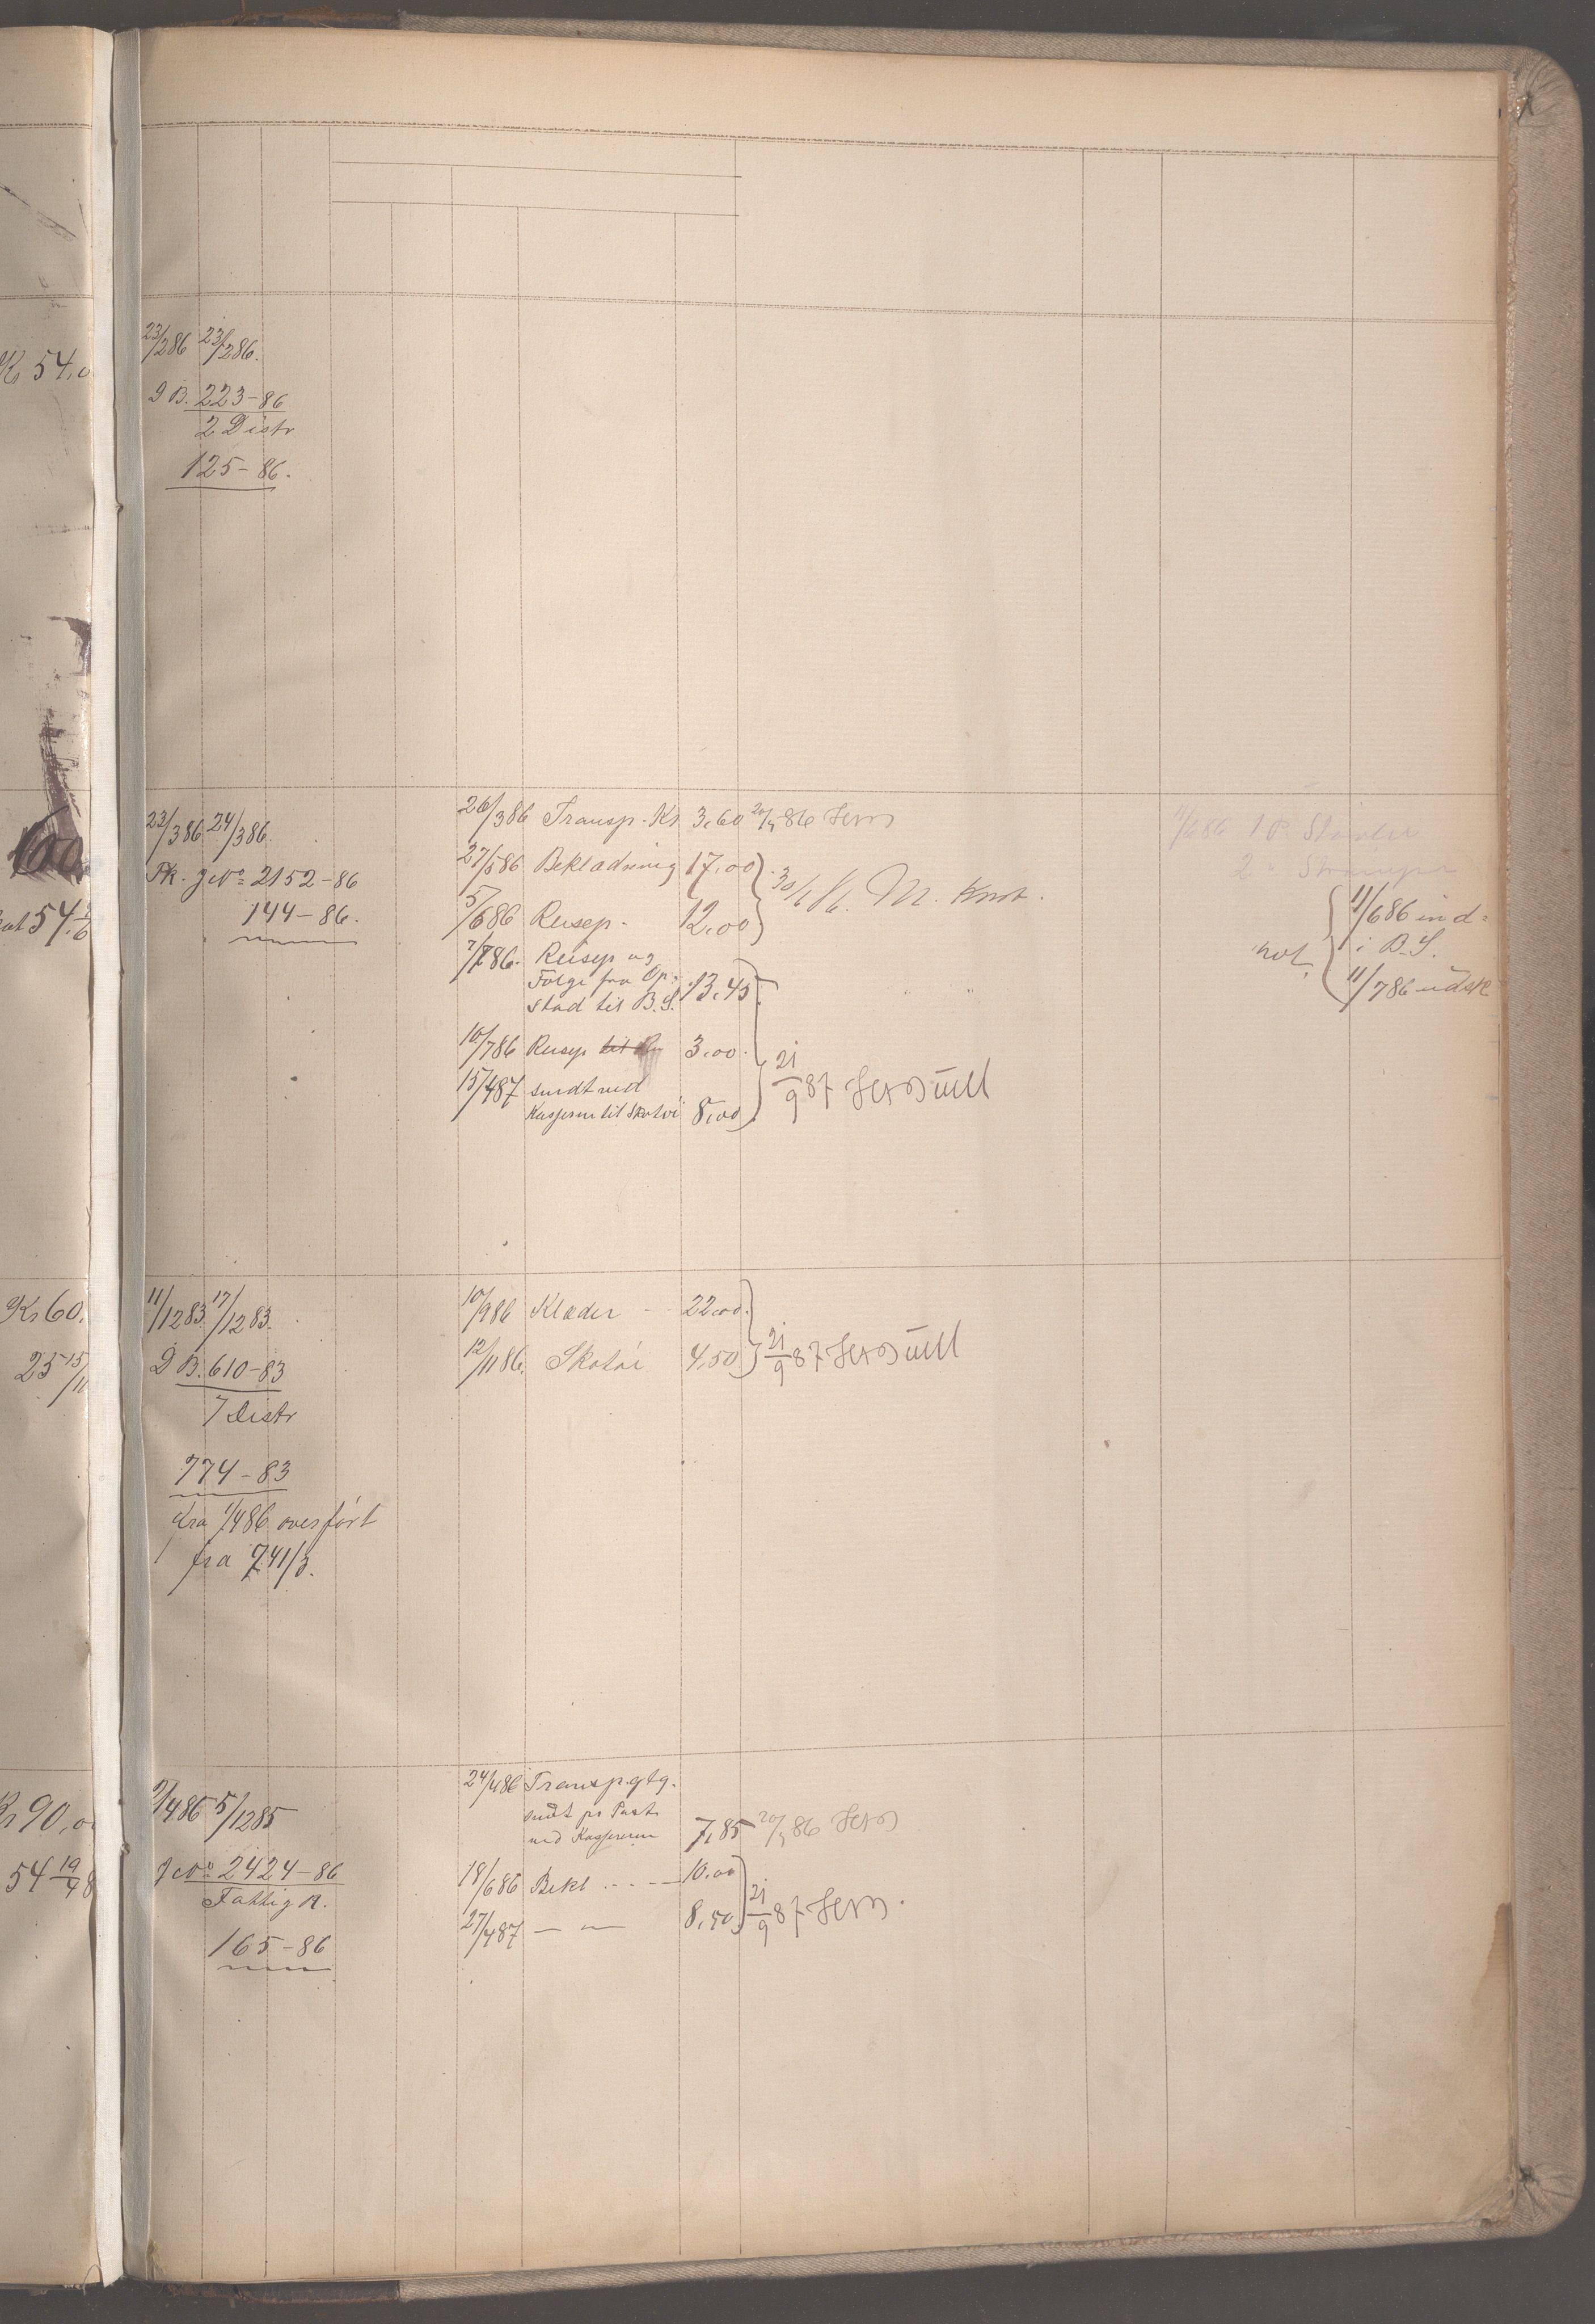 Kr 54,0
23/286 23/286.
D B. 223-86
2 Distr
125-86.
23/386 24/386.
Fk. J No 2152-86
144-86.
54
26/386 Transp. Kr 3,60 20/5 86
27/586 Beklædning 17,00
5/686 Reisep. 12,00
30/6 86. M.
7/786. Reisep og
Følge fra Op-
stad til B.S. 13,45
10/786 Reisep 3,00
15/487 sendt ved
Kassereren til Skotøi 8,00
21/9 87
11/686 1 P.
2 "
not.
11/686 ind=
i B.S.
11/786 udsk
Kr 60.
25 15/11
11/1283 17/1283.
D B. 610-83
7 Distr
774-83
Fra 1/486 overført
fra 741/3.
10/986 Klæder - - 22,00
12/1186. Skotøi 4,50
21/9 87
Kr 90,0
54 19/4 8
2/486 5/1285
J No 2424-86
Fattig K.
165-86
24/486 Transp.gtg.
sendt pr Post
ved Kassereren 7,85 20/5 86
18/686 Bekl .... 10,00
27/487 — — 8,50
21/9 87